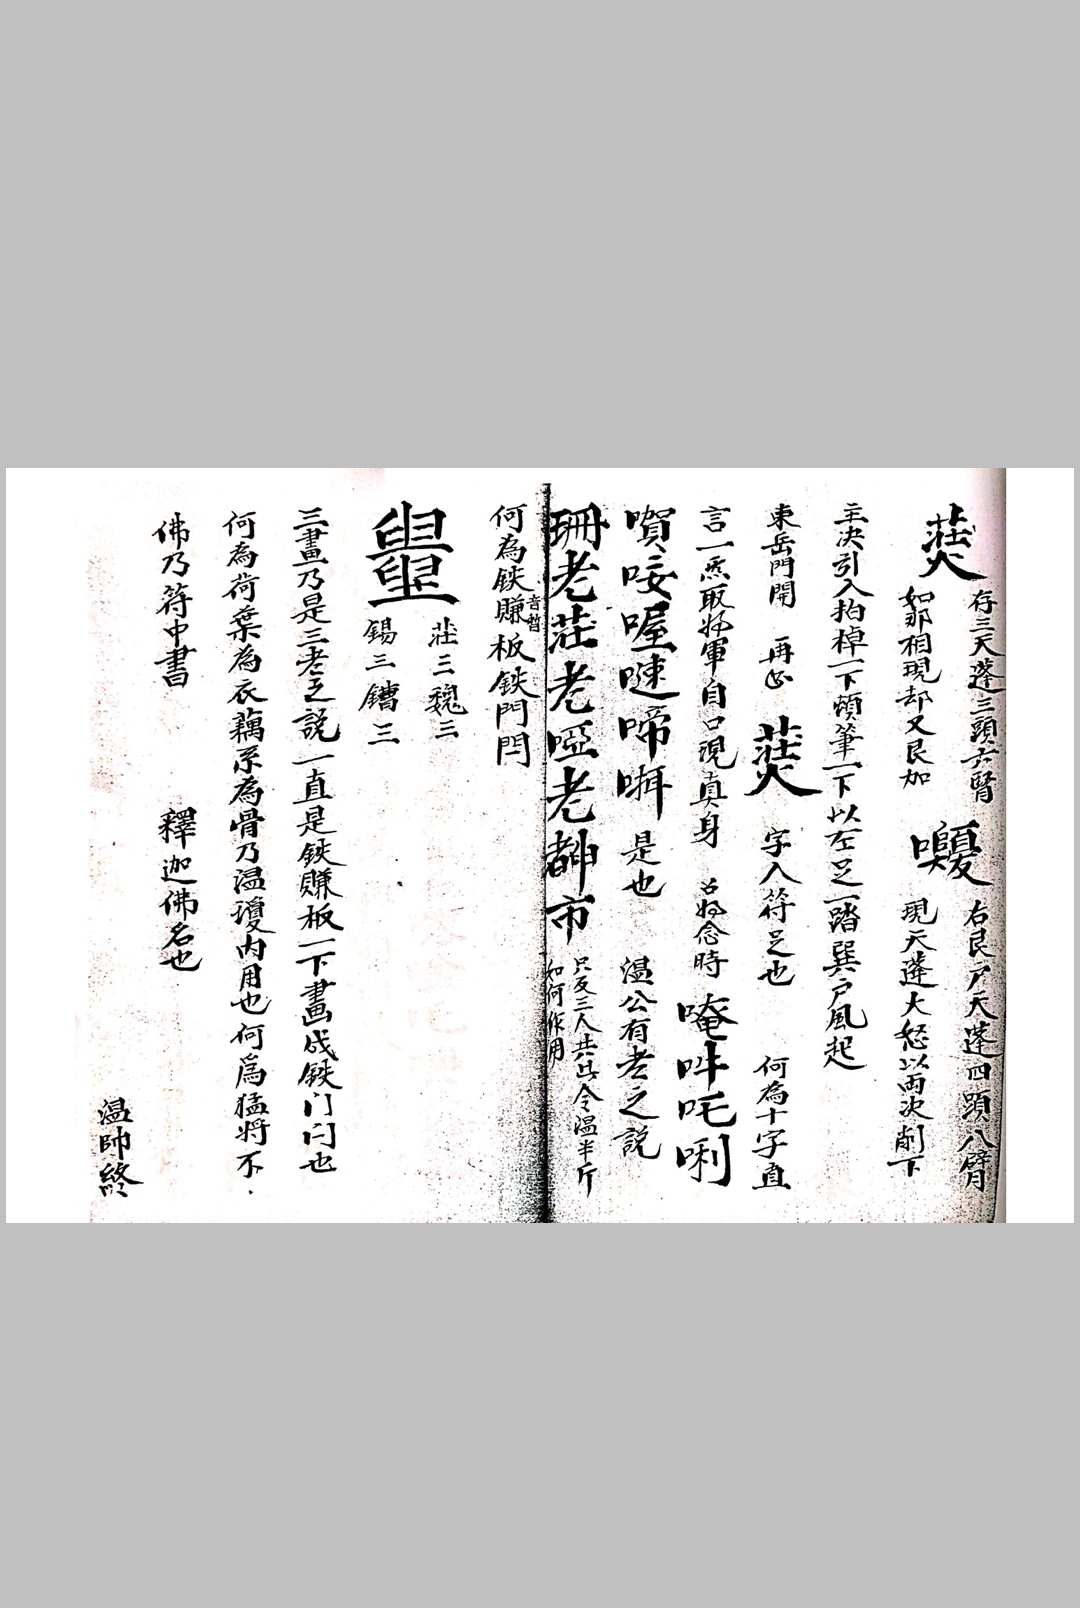 存三天蓬三頭六臂 右艮戶天蓬四頭八臂
如那相現却又艮加 現天蓬大怒以両次削下
主决引入拍棹一下頓筆一下以左足一踏巽户風起
東岳門開 再 字入符足也 何為十字直
言一 取 軍自口現真身 念時 唵吽吒唎
是也 温公有老之説
珊老莊老啞老都市 只反三人共 令温半斤
如何作用
何為鉄賺板鉄門閂
莊三魏三
錫三鐟三
三畫乃是三老之説一直是鉄賺板一下畫成鉄门闩也
何為荷葉為衣藕糸為骨乃温瓊内用也何爲猛將不
佛乃符中書 釋迦佛名也
温帥終